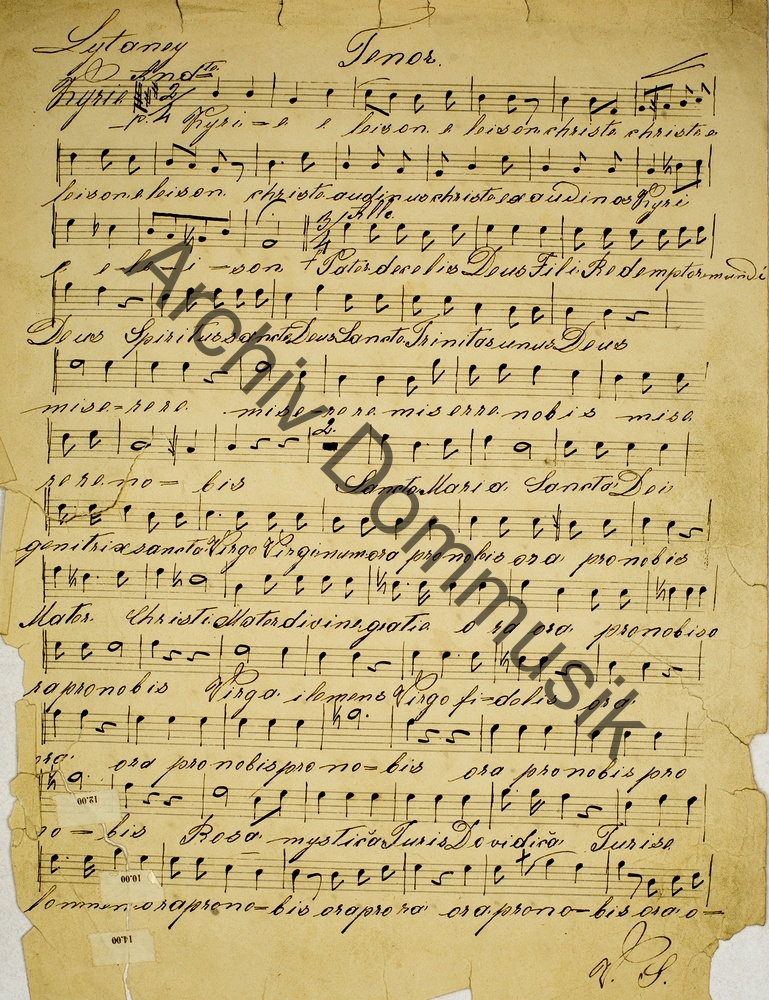 Lytaney Tenor.
Andte
Kyrie 2/4
p. Kyri = e e leison e leison christe christe e
leison e leison christe audi nos christe exaudi nos Kyri
e e le - i = son Pater de celis Deus Fili Redemptor mundi
3/4
Deus Spiritus sancte Deus Sancta Trinitas unus Deus
mise = rere mise - rere miserre nobis mise
2.
rere no = bis Sancta Maria Sancta Dei
genitrix sancta Virgo Virginum ora pro nobis ora pro nobis
Mater Christi Mater divine gratie o ra ora pro nobis o
ra pro nobis Virgo clemens Virgo fi = delis ora
ora ora pro nobis pro no = bis ora pro nobis pro
12.00
no = bis Rosa mystica Turis Davidica Turise
10.00
lommen ora pro no = bis ora pro ra ora pro no = bis ora o =
14.00
V. S.
Archiv Dommusik